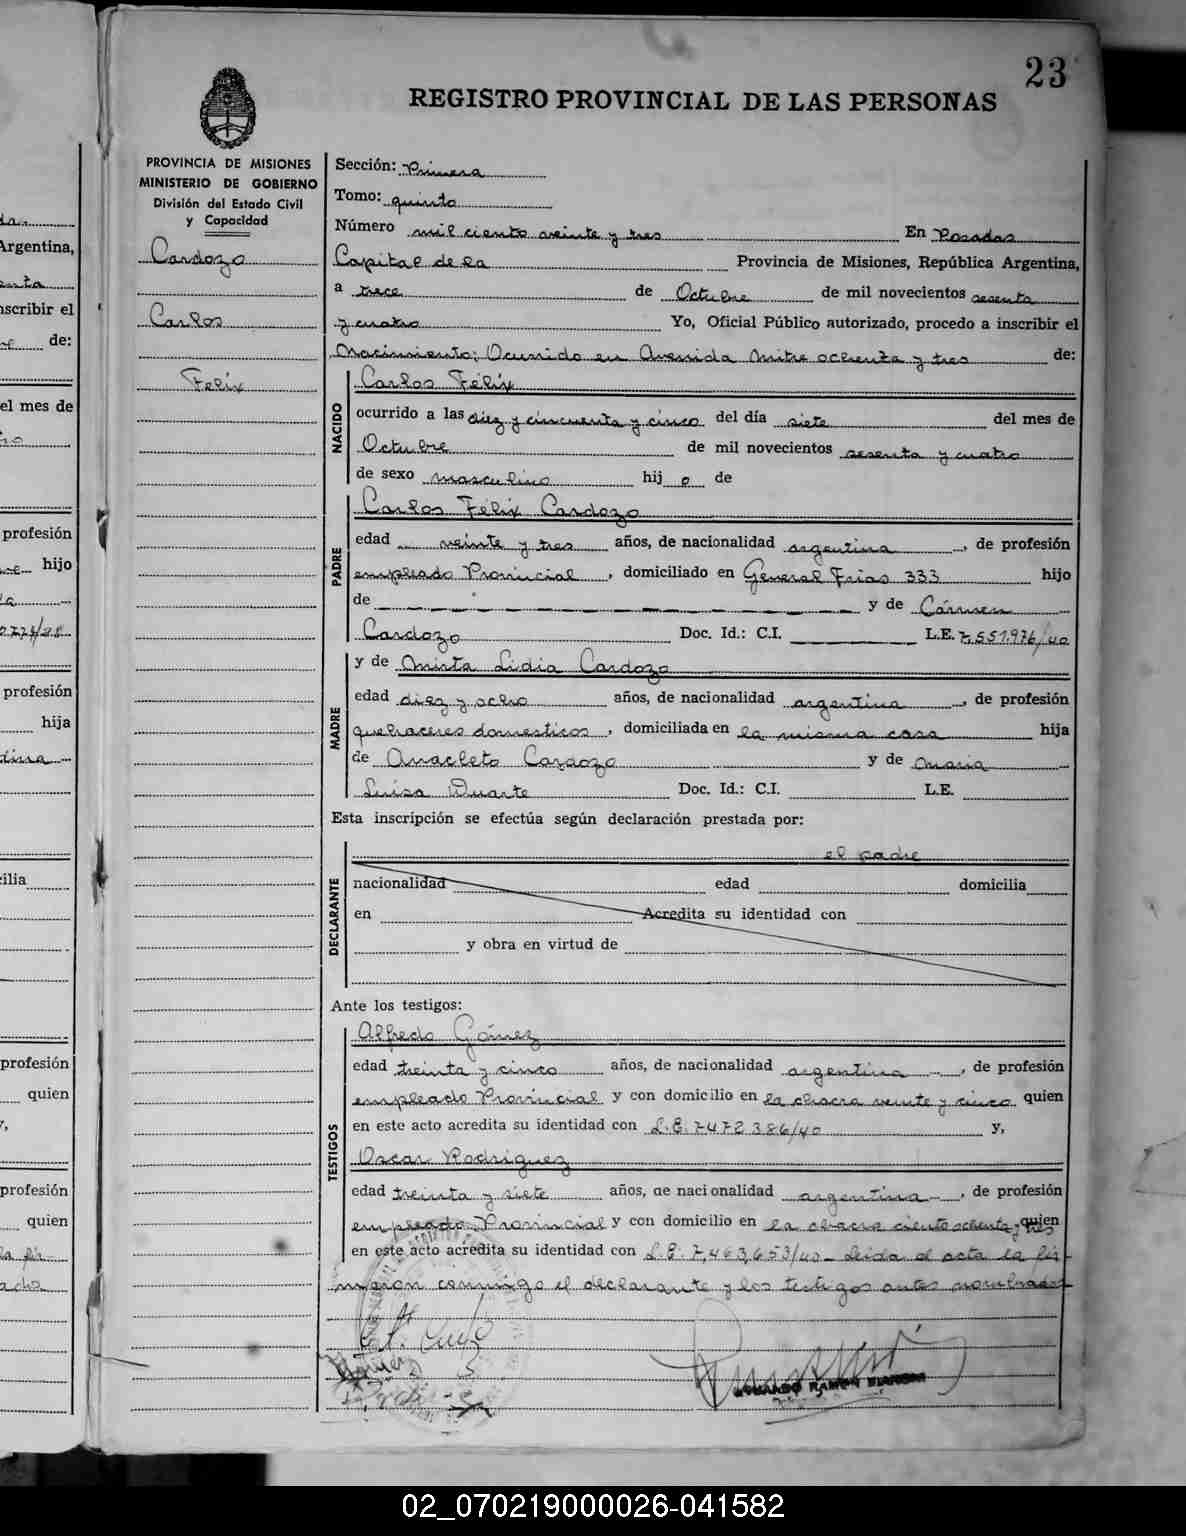 23
REGISTRO PROVINCIAL DE LAS PERSONAS
PROVINCIA DE MISIONES
MINISTERIO DE GOBIERNO
División del Estado Civil
y Capacidad
Cardozo
Carlos
Felix
Sección: Primera
Tomo: quinto
Número mil ciento veinte y tres En Posadas
Capital de la Provincia de Misiones, República Argentina,
a trece de Octubre de mil novecientos sesenta
y cuatro Yo, Oficial Público autorizado, procedo a inscribir el
Nacimiento; Ocurrido en Avenida Mitre ochenta y tres de:
NACIDO
Carlos Félix
ocurrido a las diez y cincuenta y cinco del día siete del mes de
Octubre de mil novecientos sesenta y cuatro
de sexo masculino hij o de
PADRE
Carlos Félix Cardozo
edad veinte y tres años, de nacionalidad argentina, de profesión
empleado Provincial, domiciliado en General Frias 333 hijo
de y de Cármen
Cardozo Doc. Id.: C.I. L.E. 7,551.976/40
y de Mirta Lidia Cardozo
MADRE
edad diez y ocho años, de nacionalidad argentina, de profesión
quehaceres domesticos, domiciliada en la misma casa hija
de Anacleto Cardozo y de Maria
Luisa Duarte Doc. Id.: C.I. L.E.
Esta inscripción se efectúa según declaración prestada por:
el padre
DECLARANTE
nacionalidad edad domicilia
en Acredita su identidad con
y obra en virtud de
Ante los testigos:
TESTIGOS
Alfredo Gómez
edad treinta y cinco años, de nacionalidad argentina, de profesión
empleado Provincial y con domicilio en la chacra veinte y cinco quien
en este acto acredita su identidad con L.E. 7472386/40 y,
Oscar Rodriguez
edad treinta y siete años, de nacionalidad argentina, de profesión
empleado Provincial y con domicilio en la chacra ciento ochenta y tres quien
en este acto acredita su identidad con L.E. 7,463,653/40 - Leida el acta la fir-
maron conmigo el declarante y los testigos antes nombrados
RAMON BIANCHI
Argentina,
inscribir el
de:
el mes de
profesión
hijo
profesión
hija
domicilia
profesión
quien
y,
profesión
quien
02_070219000026-041582